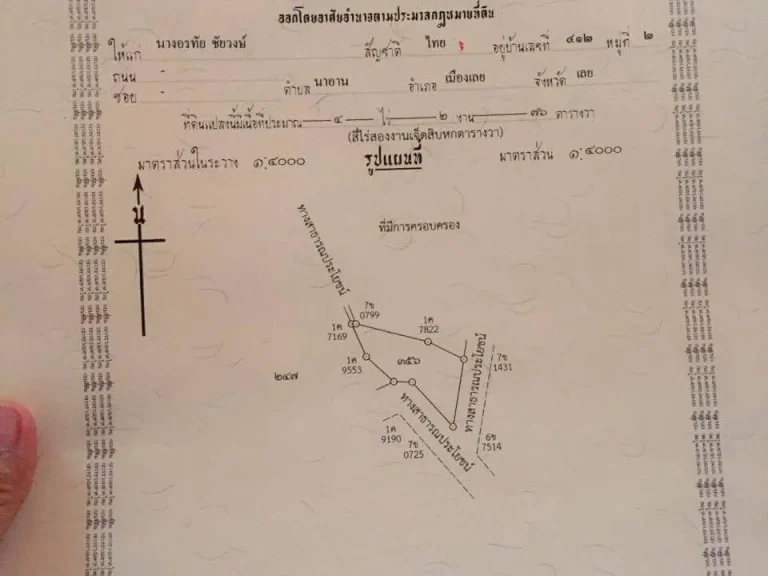 ออกโดยอาศัยอำนาจตามประมวลกฎหมายที่ดิน
ให้แก่ นางอรทัย ชัยวงษ์ สัญชาติ ไทย อยู่บ้านเลขที่ ๔๑๒ หมู่ที่ ๒
ถนน -
ซอย - ตำบล นาอาน อำเภอ เมืองเลย จังหวัด เลย
ที่ดินแปลงนี้มีเนื้อที่ประมาณ ๔ ไร่ ๒ งาน ๗๖ ตารางวา
(สี่ไร่สองงานเจ็ดสิบหกตารางวา)
มาตราส่วนในระวาง ๑:๔๐๐๐ รูปแผนที่ มาตราส่วน ๑:๔๐๐๐
น
ที่มีการครอบครอง
ทางสาธารณประโยชน์
7ข
0799
1ค
7169
1ค
7822
1ค
9553
๓๕๖
๒๔๗
ทางสาธารณประโยชน์
7ข
1431
ทางสาธารณประโยชน์
1ค
9190
7ข
0725
6ข
7514